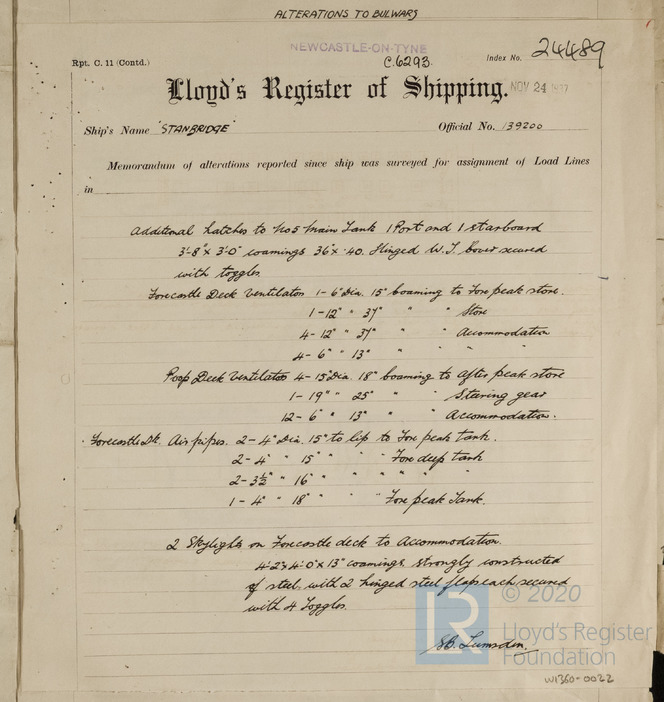 ALTERATIONS TO BULWARS
NEWCASTLE-ON-TYNE
Rpt. C. 11 (Contd.) C.6293. Index No. 24489
Lloyd's Register of Shipping. NOV 24 1937
Ship's Name "STANBRIDGE" Official No. 139200
Memorandum of alterations reported since ship was surveyed for assignment of Load Lines
in
Additional hatches to No5 Main Tank 1 Port and 1 starboard
3'-8" x 3'-0" coamings 36" x .40. Hinged W.T. cover secured
with toggles.
Forecastle Deck Ventilators 1-6" Dia. 15" coaming to Fore peak store.
1-12" " 37" " " Store
4-12" " 37" " " Accommodation
4-6" " 13" " " "
Poop Deck Ventilators 4-15" Dia. 18" coaming to after peak store
1-19" " 25" " " Steering gear
12-6" " 13" " " Accommodation.
Forecastle Dk. Air pipes. 2-4" Dia. 15" to lip to Fore peak tank.
2-4" " 15" " " " Fore deep tank
2-3½" " 16" " " " " " "
1-4" " 18" " " " Fore peak Tank.
2 Skylights on Forecastle deck to Accommodation.
4'-2" x 4'-0" x 13" coamings, strongly constructed
of steel, with 2 hinged steel flaps each secured
with 4 Toggles.
Lumsden.
LR © 2020
Lloyd's Register
Foundation
W1360-0022